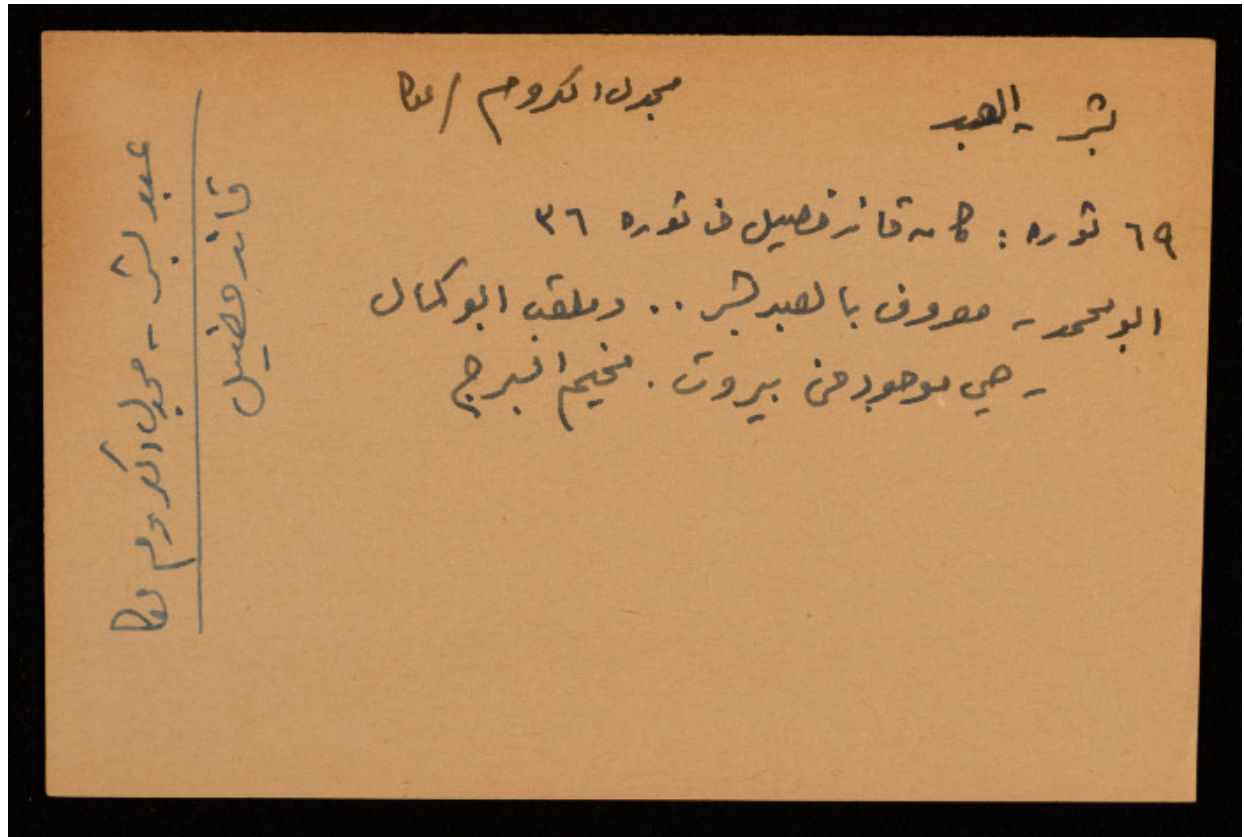 بشر - العبد
مجدل الكروم / عكا
٦٩ ثوره : كان قائد فصيل في ثوره ٣٦
ابو محمد - معروف بالعبد بشر .. وملقب ابو كمال
- حي موجود في بيروت . مخيم البرج
عبد بشر - مجدل الكروم عكا
قائد فصيل